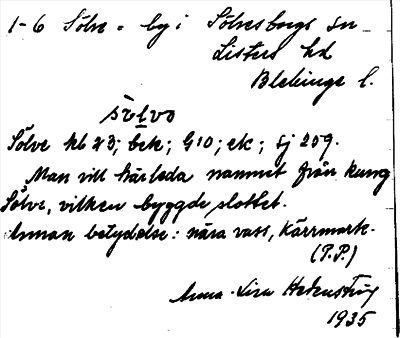 1-6 Sölve = by i Sölvesborgs sn
Listers hd
Blekinge l.
sölvo
Sölve hb 23; bek; G10; ek; sj 209.
Man vill härleda namnet från kung
Sölve, vilken byggde slottet.
Annan betydelse: nära vass, kärrmark.
(P.P.)
Anna-Lisa
1935